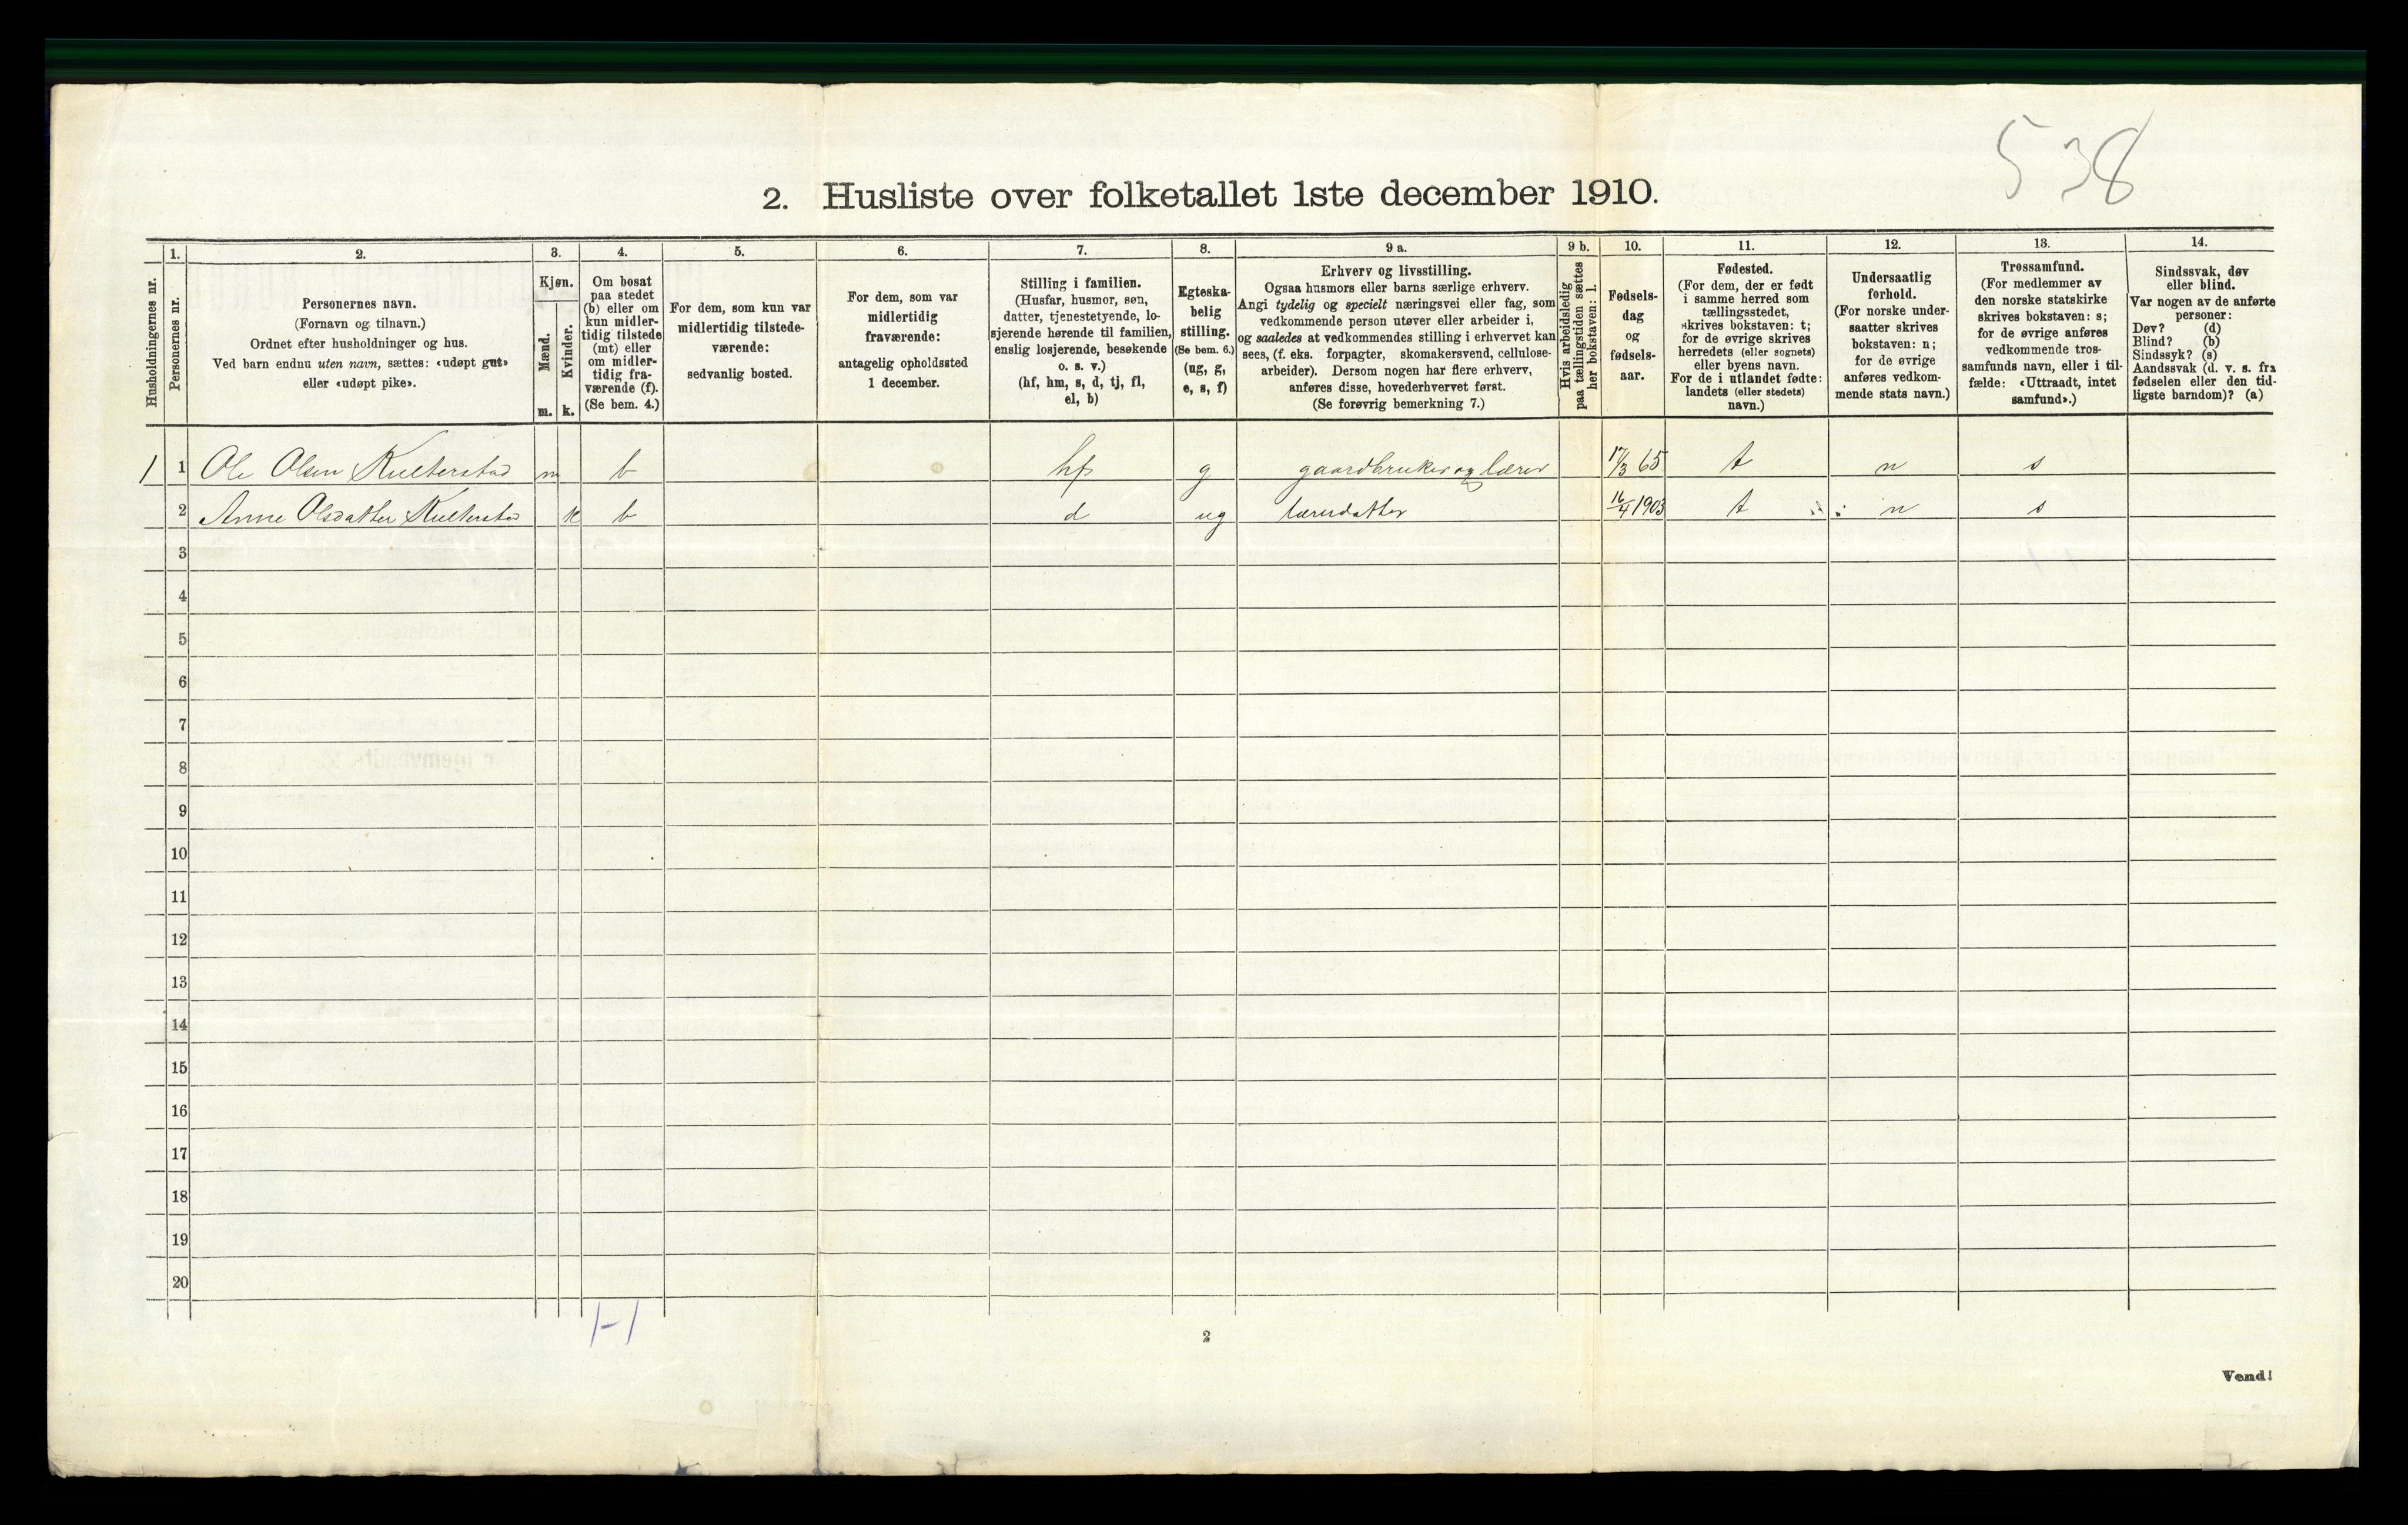 538
2. Husliste over folketallet 1ste december 1910.
Husholdningernes nr.
1.
Personernes nr.
2.
Personernes navn.
(Fornavn og tilnavn.)
Ordnet efter husholdninger og hus.
Ved barn endnu uten navn, sættes: «udøpt gut»
eller «udøpt pike».
3.
Kjøn.
Mænd.
Kvinder.
m. k.
4.
Om bosat
paa stedet
(b) eller om
kun midler-
tidig tilstede
(mt) eller
om midler-
tidig fra-
værende (f).
(Se bem. 4.)
5.
For dem, som kun var
midlertidig tilstede-
værende:
sedvanlig bosted.
6.
For dem, som var
midlertidig
fraværende:
antagelig opholdssted
1 december.
7.
Stilling i familien.
(Husfar, husmor, søn,
datter, tjenestetyende, lo-
sjerende hørende til familien,
enslig losjerende, besøkende
o. s. v.)
(hf, hm, s, d, tj, fl,
el, b)
8.
Egteska-
belig
stilling.
(Se bem. 6.)
(ug, g,
e, s, f)
9 a.
Erhverv og livsstilling.
Ogsaa husmors eller barns særlige erhverv.
Angi tydelig og specielt næringsvei eller fag, som
vedkommende person utøver eller arbeider i,
og saaledes at vedkommendes stilling i erhvervet kan
sees, (f. eks. forpagter, skomakersvend, cellulose-
arbeider). Dersom nogen har flere erhverv,
anføres disse, hovederhvervet først.
(Se forøvrig bemerkning 7.)
9 b.
Hvis arbeidsledig
paa tællingstiden sættes
her bokstaven: l.
10.
Fødsels-
dag
og
fødsels-
aar.
11.
Fødested.
(For dem, der er født
i samme herred som
tællingsstedet,
skrives bokstaven: t;
for de øvrige skrives
herredets (eller sognets)
eller byens navn.
For de i utlandet fødte:
landets (eller stedets)
navn.)
12.
Undersaatlig
forhold.
(For norske under-
saatter skrives
bokstaven: n;
for de øvrige
anføres vedkom-
mende stats navn.)
13.
Trossamfund.
(For medlemmer av
den norske statskirke
skrives bokstaven: s;
for de øvrige anføres
vedkommende tros-
samfunds navn, eller i til-
fælde: «Uttraadt, intet
samfund».)
14.
Sindssvak, døv
eller blind.
Var nogen av de anførte
personer:
Døv? (d)
Blind? (b)
Sindssyk? (s)
Aandssvak (d. v. s. fra
fødselen eller den tid-
ligste barndom)? (a)
1 1 Ole Olsen Kulterstad m b hf g gaardbruker og lærer 17/3 65 t n s
2 Anne Olsdatter Kulterstad k b d ug lærerdatter 16/4 1903 t n s
3
4
5
6
7
8
9
10
11
12
13
14
15
16
17
18
19
20
1-1
2
Vend!